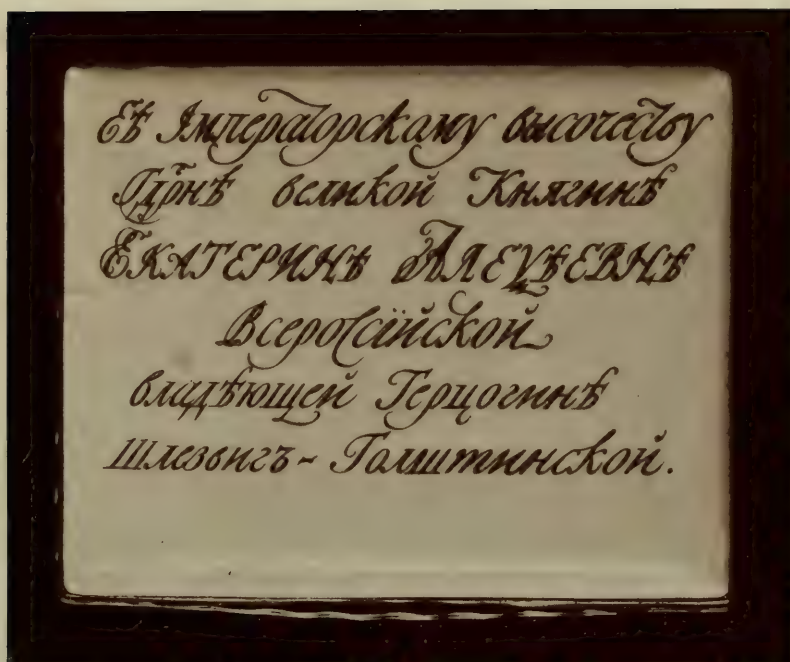 Еѣ Імператорскому высочеству
Гдрнѣ великой Княгинѣ
ЕКАТЕРИНѢ АЛЕЦѢЕВНѢ
Всероссїйской
владѣющей Герцогинѣ
Шлезвигъ - Голштинской.